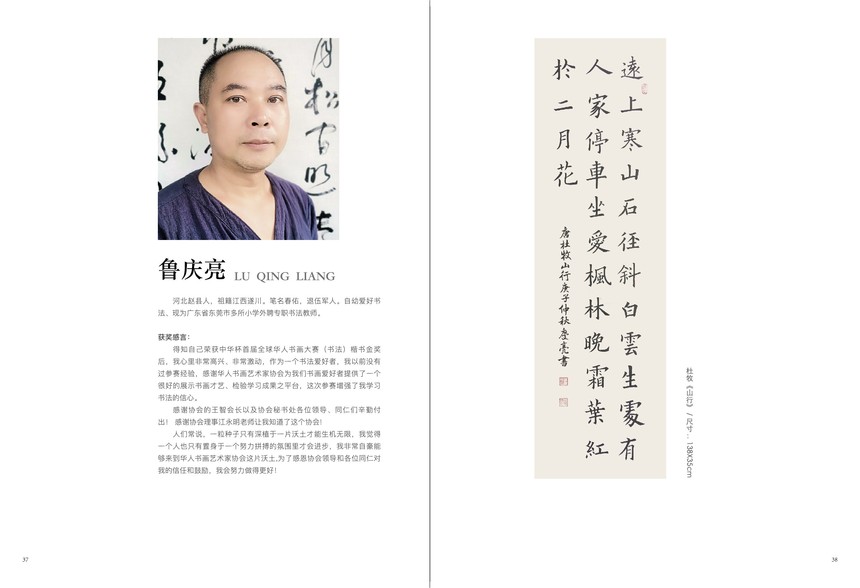 鲁庆亮 LU QING LIANG
河北赵县人，祖籍江西遂川。笔名春佑，退伍军人。自幼爱好书
法，现为广东省东莞市多所小学外聘专职书法教师。
获奖感言：
得知自己荣获中华杯首届全球华人书画大赛（书法）楷书金奖
后，我心里非常高兴，非常激动，作为一个书法爱好者，我以前没有
过参赛经验，感谢华人书画艺术家协会为我们书画爱好者提供了一个
很好的展示书画才艺，检验学习成果之平台，这次参赛增强了我学习
书法的信心。
感谢协会的王智会长以及协会秘书处各位领导，同仁们辛勤付
出！ 感谢协会理事江永明老师让我知道了这个协会！
人们常说，一粒种子只有深植于一片沃土才能生机无限，我觉得
一个人也只有置身于一个努力拼搏的氛围里才会进步，我非常自豪能
够来到华人书画艺术家协会这片沃土,为了感恩协会领导和各位同仁对
我的信任和鼓励，我会努力做得更好！
37
遠上寒山石径斜白雲生處有
人家停車坐愛楓林晚霜葉紅
於二月花
唐杜牧山行庚子仲秋慶亮書
杜牧《山行》 / 尺寸：138X35cm
38